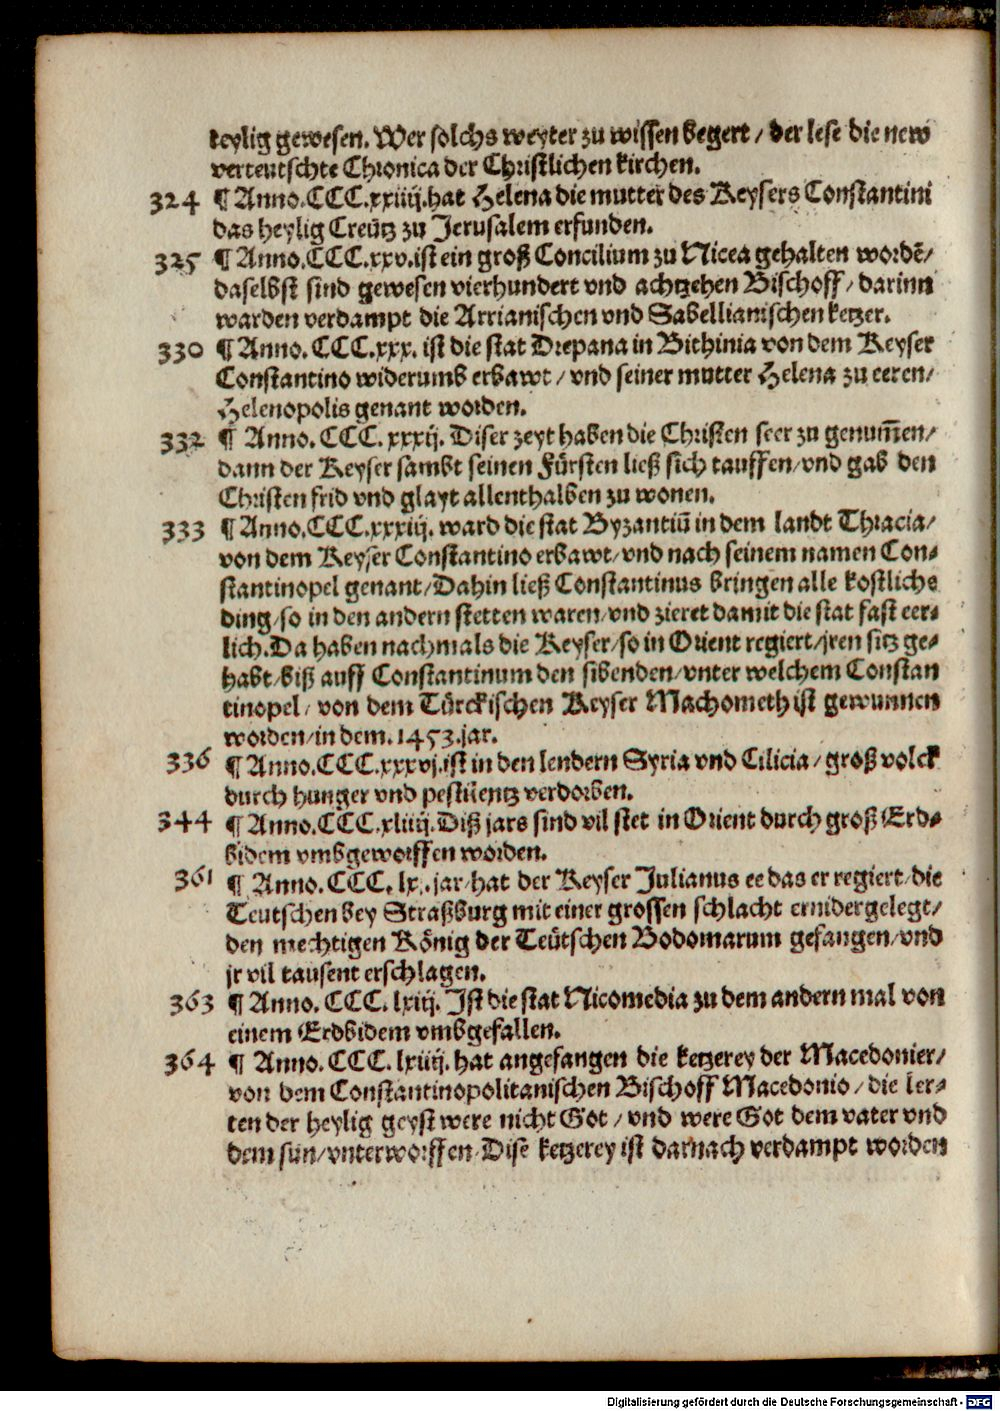 teylig gewesen. Wer solchs weyter zu wissen begert / der lese die new
verteutschte Chronica der Christlichen kirchen.
324 ¶ Anno. CCC.xxiiij. hat Helena die mutter des Keysers Constantini
das heylig Creütz zu Jerusalem erfunden.
325 ¶ Anno. CCC.xxv. ist ein groß Concilium zu Nicea gehalten wordē/
daselbst sind gewesen vierhundert vnd achtzehen Bischoff / darinn
warden verdampt die Arrianischen vnd Sabellianischen ketzer.
330 ¶ Anno. CCC.xxx. ist die stat Drepana in Bithinia von dem Keyser
Constantino widerumb erbawt / vnd seiner mutter Helena zu eeren/
Helenopolis genant worden.
332 ¶ Anno. CCC. xxxij. Diser zeyt haben die Christen seer zu genum̄en/
dann der Keyser sambt seinen Fürsten ließ sich tauffen/vnd gab den
Christen frid vnd glayt allenthalben zu wonen.
333 ¶ Anno. CCC.xxxiij. ward die stat Byzantiū in dem landt Thracia/
von dem Keyser Constantino erbawt/vnd nach seinem namen Con-
stantinopel genant/Dahin ließ Constantinus bringen alle kostliche
ding/so in den andern stetten waren/vnd zieret damit die stat fast eer-
lich. Da haben nachmals die Keyser/so in Orient regiert/jren sitz ge-
habt/biß auff Constantinum den sibenden/vnter welchem Constan
tinopel/ von dem Türckischen Keyser Machometh ist gewunnen
worden/in dem. 1453. jar.
336 ¶ Anno. CCC.xxxvj. ist in den lendern Syria vnd Cilicia/ groß volck
durch hunger vnd pestilentz verdorben.
344 ¶ Anno. CCC.xliiij. Diß jars sind vil stet in Orient durch groß Erd-
bidem vmbgeworffen worden.
361 ¶ Anno. CCC. lxj. jar/hat der Keyser Julianus ee das er regiert/die
Teutschen bey Straßburg mit einer grossen schlacht ernidergelegt/
den mechtigen König der Teütschen Bodomarum gefangen/vnd
jr vil tausent erschlagen.
363 ¶ Anno. CCC. lxiij. Ist die stat Nicomedia zu dem andern mal von
einem Erdbidem vmbgefallen.
364 ¶ Anno. CCC. lxiiij. hat angefangen die ketzerey der Macedonier/
von dem Constantinopolitanischen Bischoff Macedonio/ die ler-
ten der heylig geyst were nicht Got / vnd were Got dem vater vnd
dem sun/vnterworffen/Dise ketzerey ist darnach verdampt worden
Digitalisierung gefördert durch die Deutsche Forschungsgemeinschaft - DFG